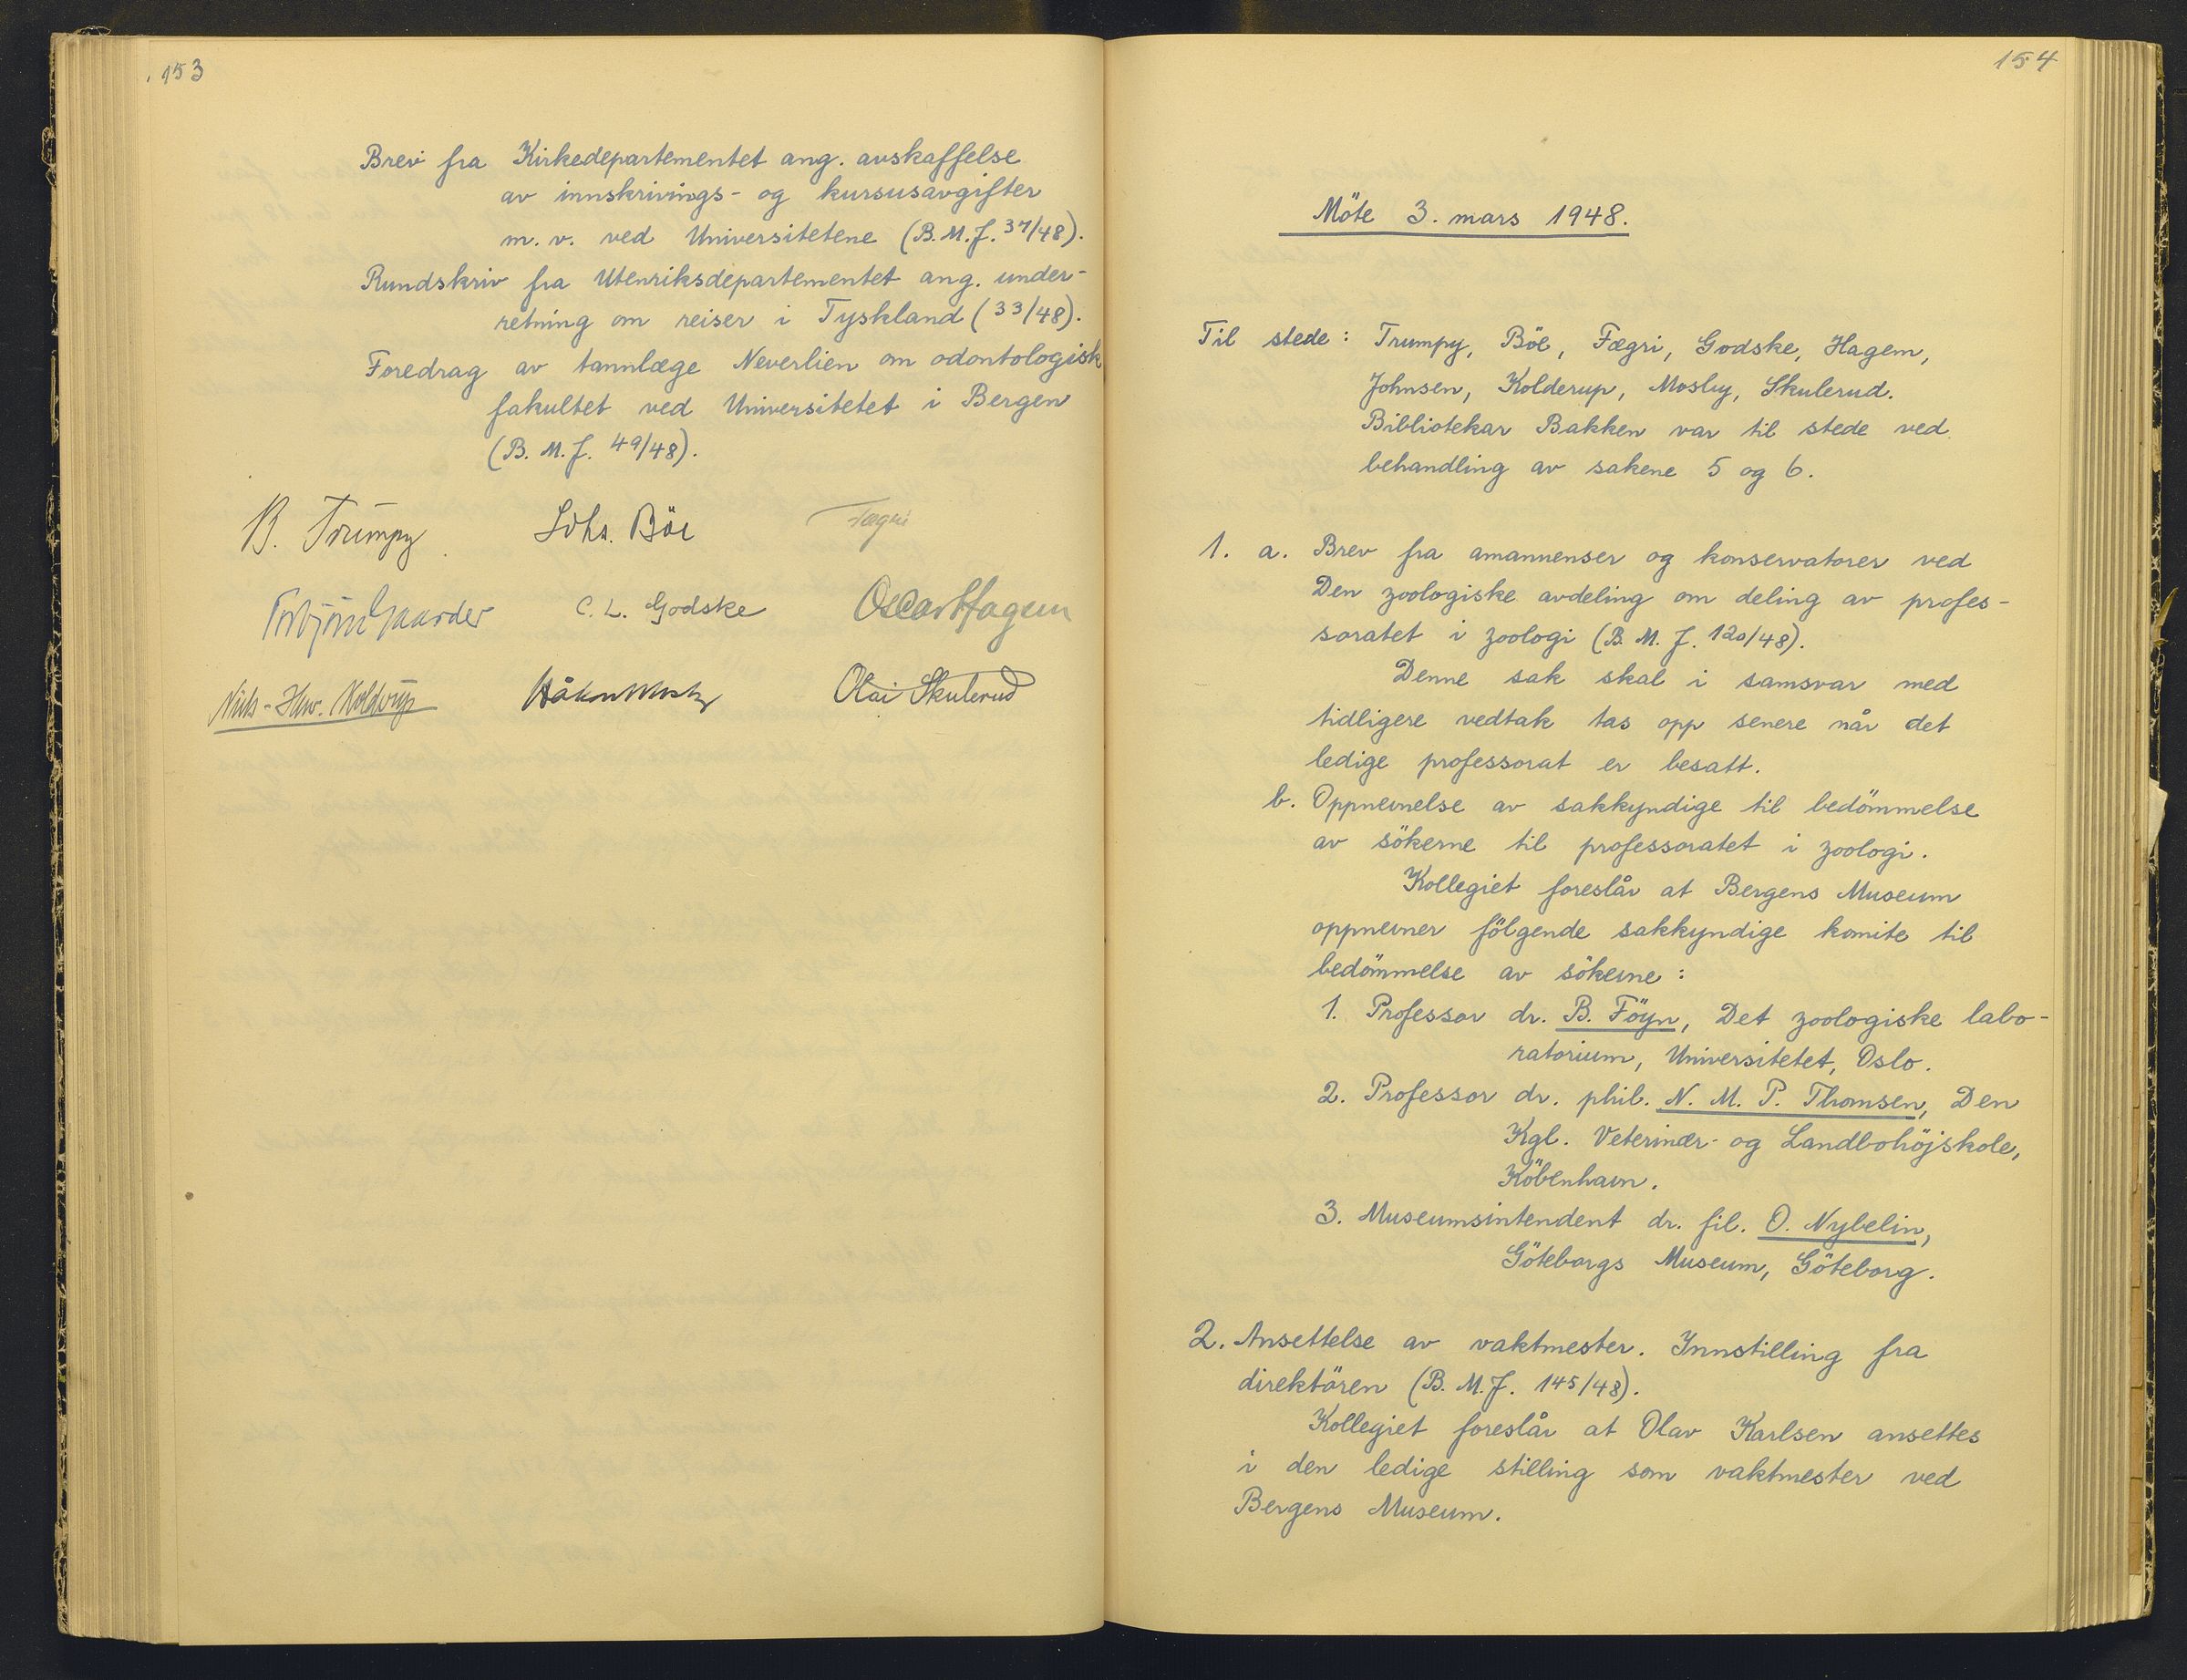 153
Brev fra Kirkedepartementet ang. avskaffelse
av innskrivings- og kursusavgifter
m. v. ved Universitetene (B. M. J. 37/48).
Rundskriv fra Utenriksdepartementet ang. under-
retning om reiser i Tyskland (33/48).
Foredrag av tannlæge Neverlien om odontologisk
fakultet ved Universitetet i Bergen
(B. M. J. 49/48).
B. Trumpy Johs. Böe Fægri
Torbjörn Gaarder C. L. Godske Oscar Hagem
Niels-Henr. Kolderup Håkon Mosby Olai Skulerud
154
Möte 3. mars 1948.
Til stede: Trumpy, Böe, Fægri, Godske, Hagem,
Johnsen, Kolderup, Mosby, Skulerud.
Bibliotekar Bakken var til stede ved
behandling av sakene 5 og 6.
1. a. Brev fra amanuenser og konservatorer ved
Den zoologiske avdeling om deling av profes-
soratet i zoologi (B. M. J. 120/48).
Denne sak skal i samsvar med
tidligere vedtak tas opp senere når det
ledige professorat er besatt.
b. Oppnevnelse av sakkyndige til bedömmelse
av sökerne til professoratet i zoologi.
Kollegiet foreslår at Bergens Museum
oppnevner fölgende sakkyndige komite til
bedömmelse av sökerne:
1. Professor dr. B. Föyn, Det zoologiske labo-
ratorium, Universitetet, Oslo.
2. Professor dr. phil. N. M. P. Thomsen, Den
Kgl. Veterinær- og Landbohöjskole,
Köbenhavn.
3. Museumsintendent dr. fil. O. Nybelin,
Göteborgs Museum, Göteborg.
2. Ansettelse av vaktmester. Innstilling fra
direktören (B. M. J. 145/48).
Kollegiet foreslår at Olav Karlsen ansettes
i den ledige stilling som vaktmester ved
Bergens Museum.